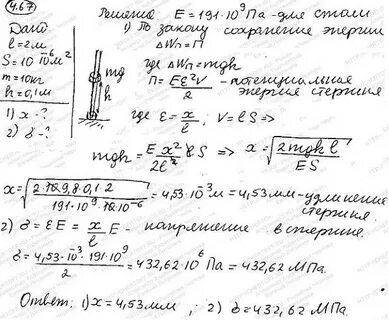 4.67
Дано
l = 2м
S = 10·10⁻⁶м²
m = 10кг
h = 0,1м
1) x - ?
2) σ - ?
Решение E = 191·10⁹Па - для стали
1) По закону сохранение энергии
ΔWп = П
где ΔWп = mgh
П = Eε²V/2 - потенциальная энергия стержня
где ε = x/l, V = lS ⇒
mg
h
mgh = E x²/2l² lS ⇒ x = √(2mghl/ES)
x = √(2·10·9,8·0,1·2/191·10⁹·10·10⁻⁶) = 4,53·10⁻³м = 4,53мм - удлинение стержня.
2) σ = εE = x/l E - напряжение в стержне
σ = 4,53·10⁻³·191·10⁹/2 = 432,62·10⁶Па = 432,62 МПа.
Ответ: 1) x = 4,53мм, ; 2) σ = 432,62 МПа.